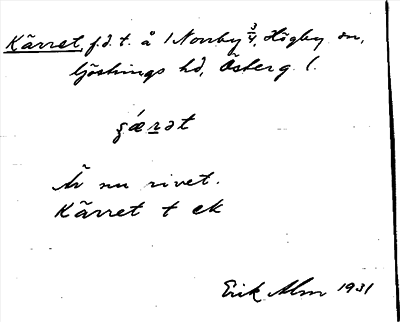 Kärret, f.d. t. å 1 Norrby 3/4, Högby sn,
Göstrings hd, Österg. l.
çǽrət
Är nu rivet.
Kärret t ek
Erik Alm 1931